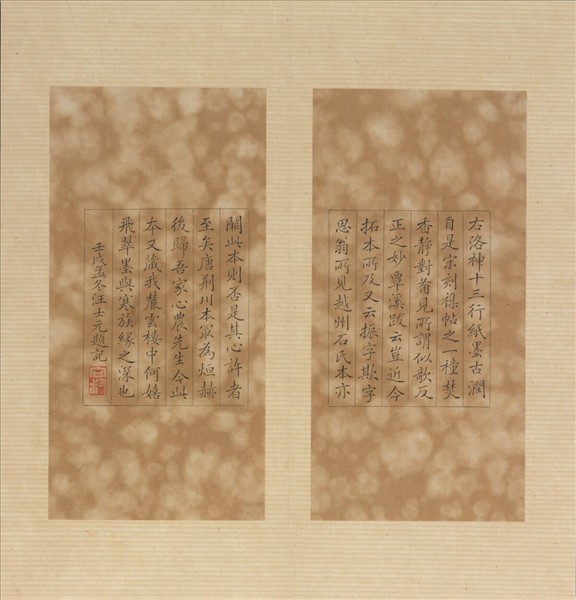 右洛神十三行紙墨古潤
自是宋刻祼帖之一種焚
香靜對莆見所謂似欹反
正之妙覃溪跋云豈近今
拓本所及又云振字欺字
思翁所見越州石氏本亦
闕此本則否是其心許者
至矣唐荆川本寂為烜赫
後歸吾家心農先生今此
本又藏我麓雲樓中何嬉
飛翠墨與寒族緣之深也
壬戌孟冬汪士元題記